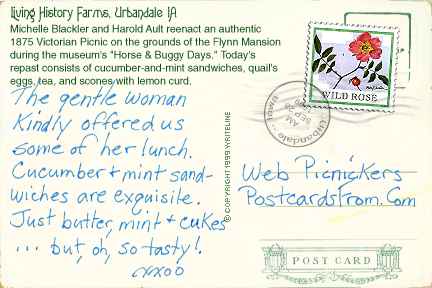 Living History Farms, Urbandale IA
Michelle Blackler and Harold Ault reenact an authentic
1875 Victorian Picnic on the grounds of the Flynn Mansion
during the museum's "Horse & Buggy Days." Today's
repast consists of cucumber-and-mint sandwiches, quail's
eggs, tea, and scones with lemon curd.
The gentle woman
Kindly offered us
some of her lunch.
Cucumber + mint sand-
wiches are exquisite.
Just butter, mint + cukes
... but, oh, so tasty!
xxoo
© COPYRIGHT 1999 WRITELINE
WILD ROSE
Urbandale
AM
SEP
Iowa
Web Picnickers
Postcardsfrom.Com
POST CARD